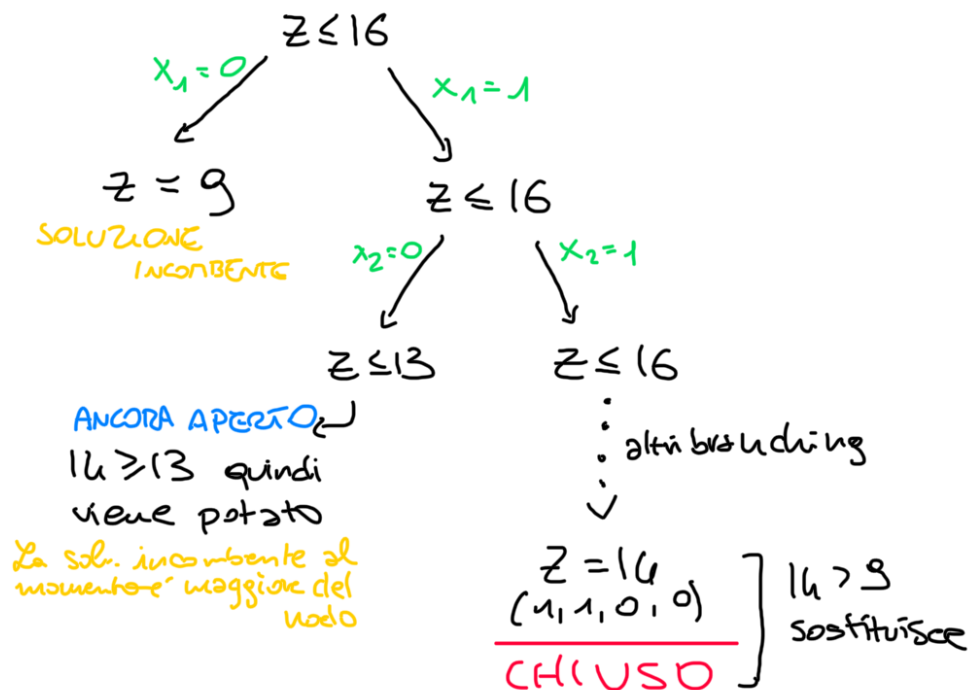 Z ≤ 16
x₁ = 0
x₁ = 1
Z = 9
SOLUZIONE
INCOMBENTE
Z ≤ 16
x₂ = 0
x₂ = 1
Z ≤ 13
Z ≤ 16
ANCORA APERTO
14 ≥ 13 quindi
viene potato
La sol. incombente al
momento è maggiore del
nodo
altri branching
Z = 14
(1, 1, 0, 0)
CHIUSO
14 > 9
sostituisce